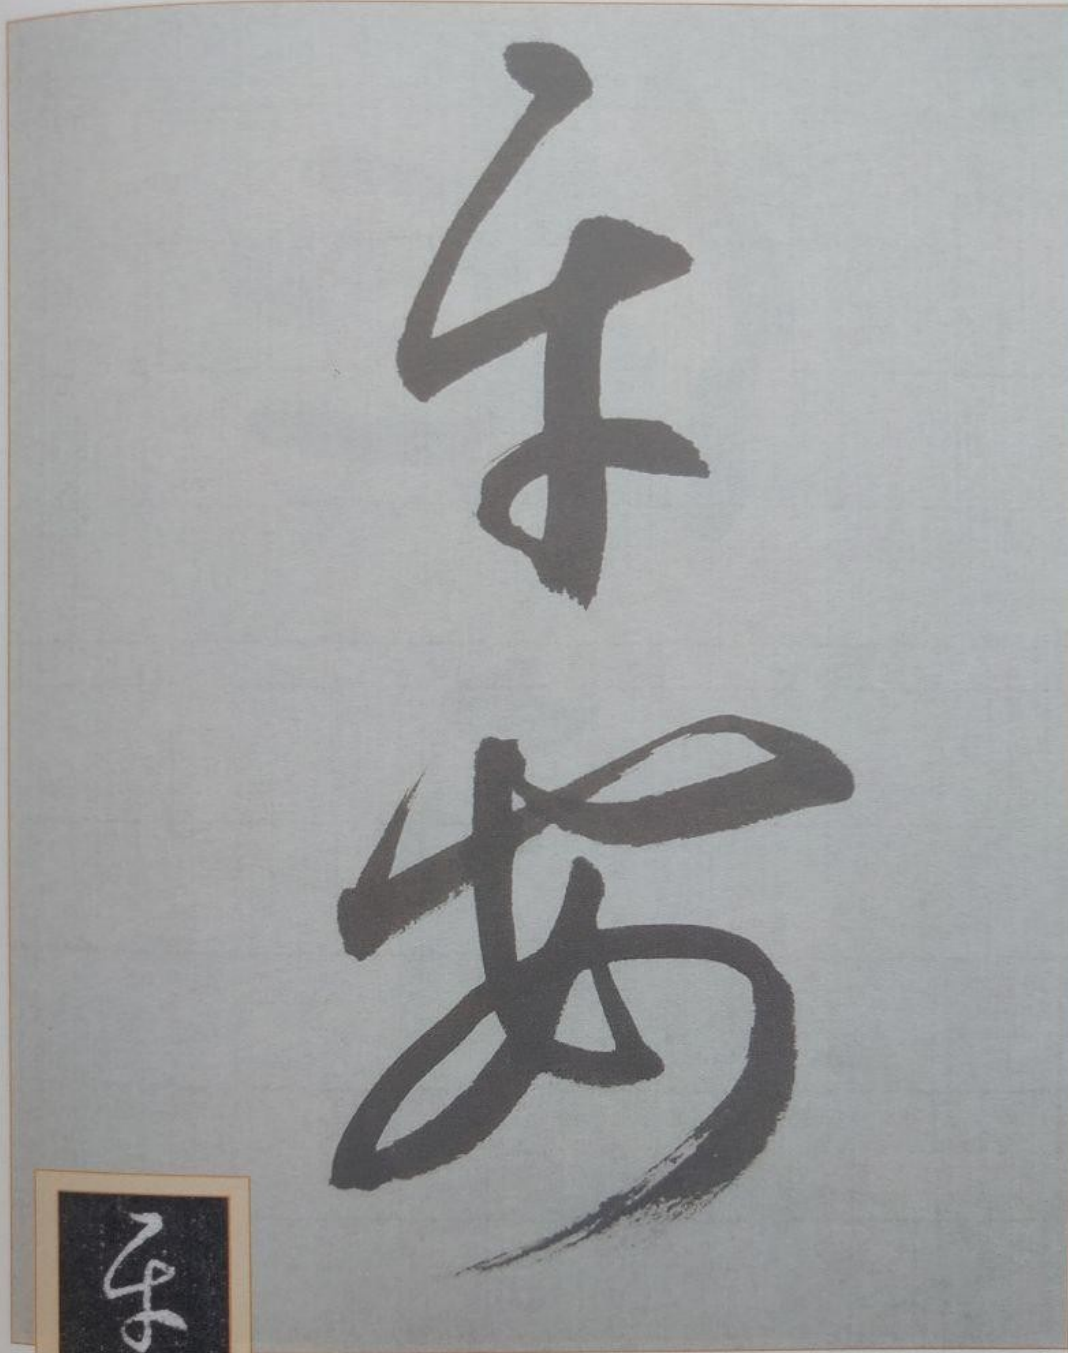 平安
平